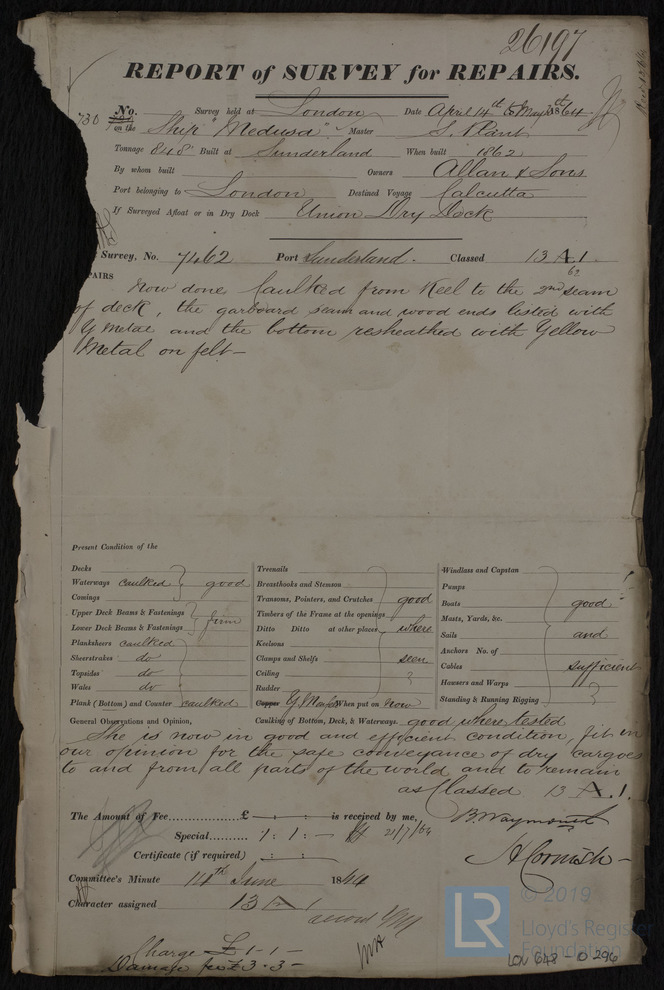 26197
REPORT of SURVEY for REPAIRS.
No. Survey held at London Date April 14th to May 1864
on the Ship "Medusa" Master S. Plant
Tonnage 848 Built at Sunderland When built 1862
By whom built Owners Allan & Sons
Port belonging to London Destined Voyage Calcutta
If Surveyed Afloat or in Dry Dock Union Dry Dock
Survey, No. 7462 Port Sunderland. Classed 13 A.1.
62
Now done Caulked from Keel to the 2nd seam
of deck, the garboard seam and wood ends listed with
Y Metal and the bottom resheathed with Yellow
Metal on felt—
Present Condition of the
Decks
Waterways caulked good
Comings
Upper Deck Beams & Fastenings
Lower Deck Beams & Fastenings firm
Planksheers caulked
Sheerstrakes do
Topsides do
Wales do
Plank (Bottom) and Counter caulked
Treenails
Breasthooks and Stemson
Transoms, Pointers, and Crutches good
Timbers of the Frame at the openings
Ditto Ditto at other places where
Keelsons
Clamps and Shelfs seen
Ceiling
Rudder
Copper Y Metal When put on now
Windlass and Capstan
Pumps
Boats good
Masts, Yards, &c.
Sails and
Anchors No. of
Cables sufficient
Hawsers and Warps
Standing & Running Rigging
General Observations and Opinion, Caulking of Bottom, Deck, & Waterways good where tested
She is now in good and efficient condition, fit in
our opinion for the safe conveyance of dry cargoes
to and from all parts of the world and to remain
as Classed 13 A.1.
The Amount of Fee £ — : — : is received by me, B. Waymouth
Special 1 : 1 : — 21/7/64
Certificate (if required) : :
J H Cornish
Committee's Minute 14th June 1864
Character assigned 13 A 1
Charge £ 1–1–
Damage fee £ 3.3–
© 2019
LR
Lloyd's Register
Foundation
LON 648-0296